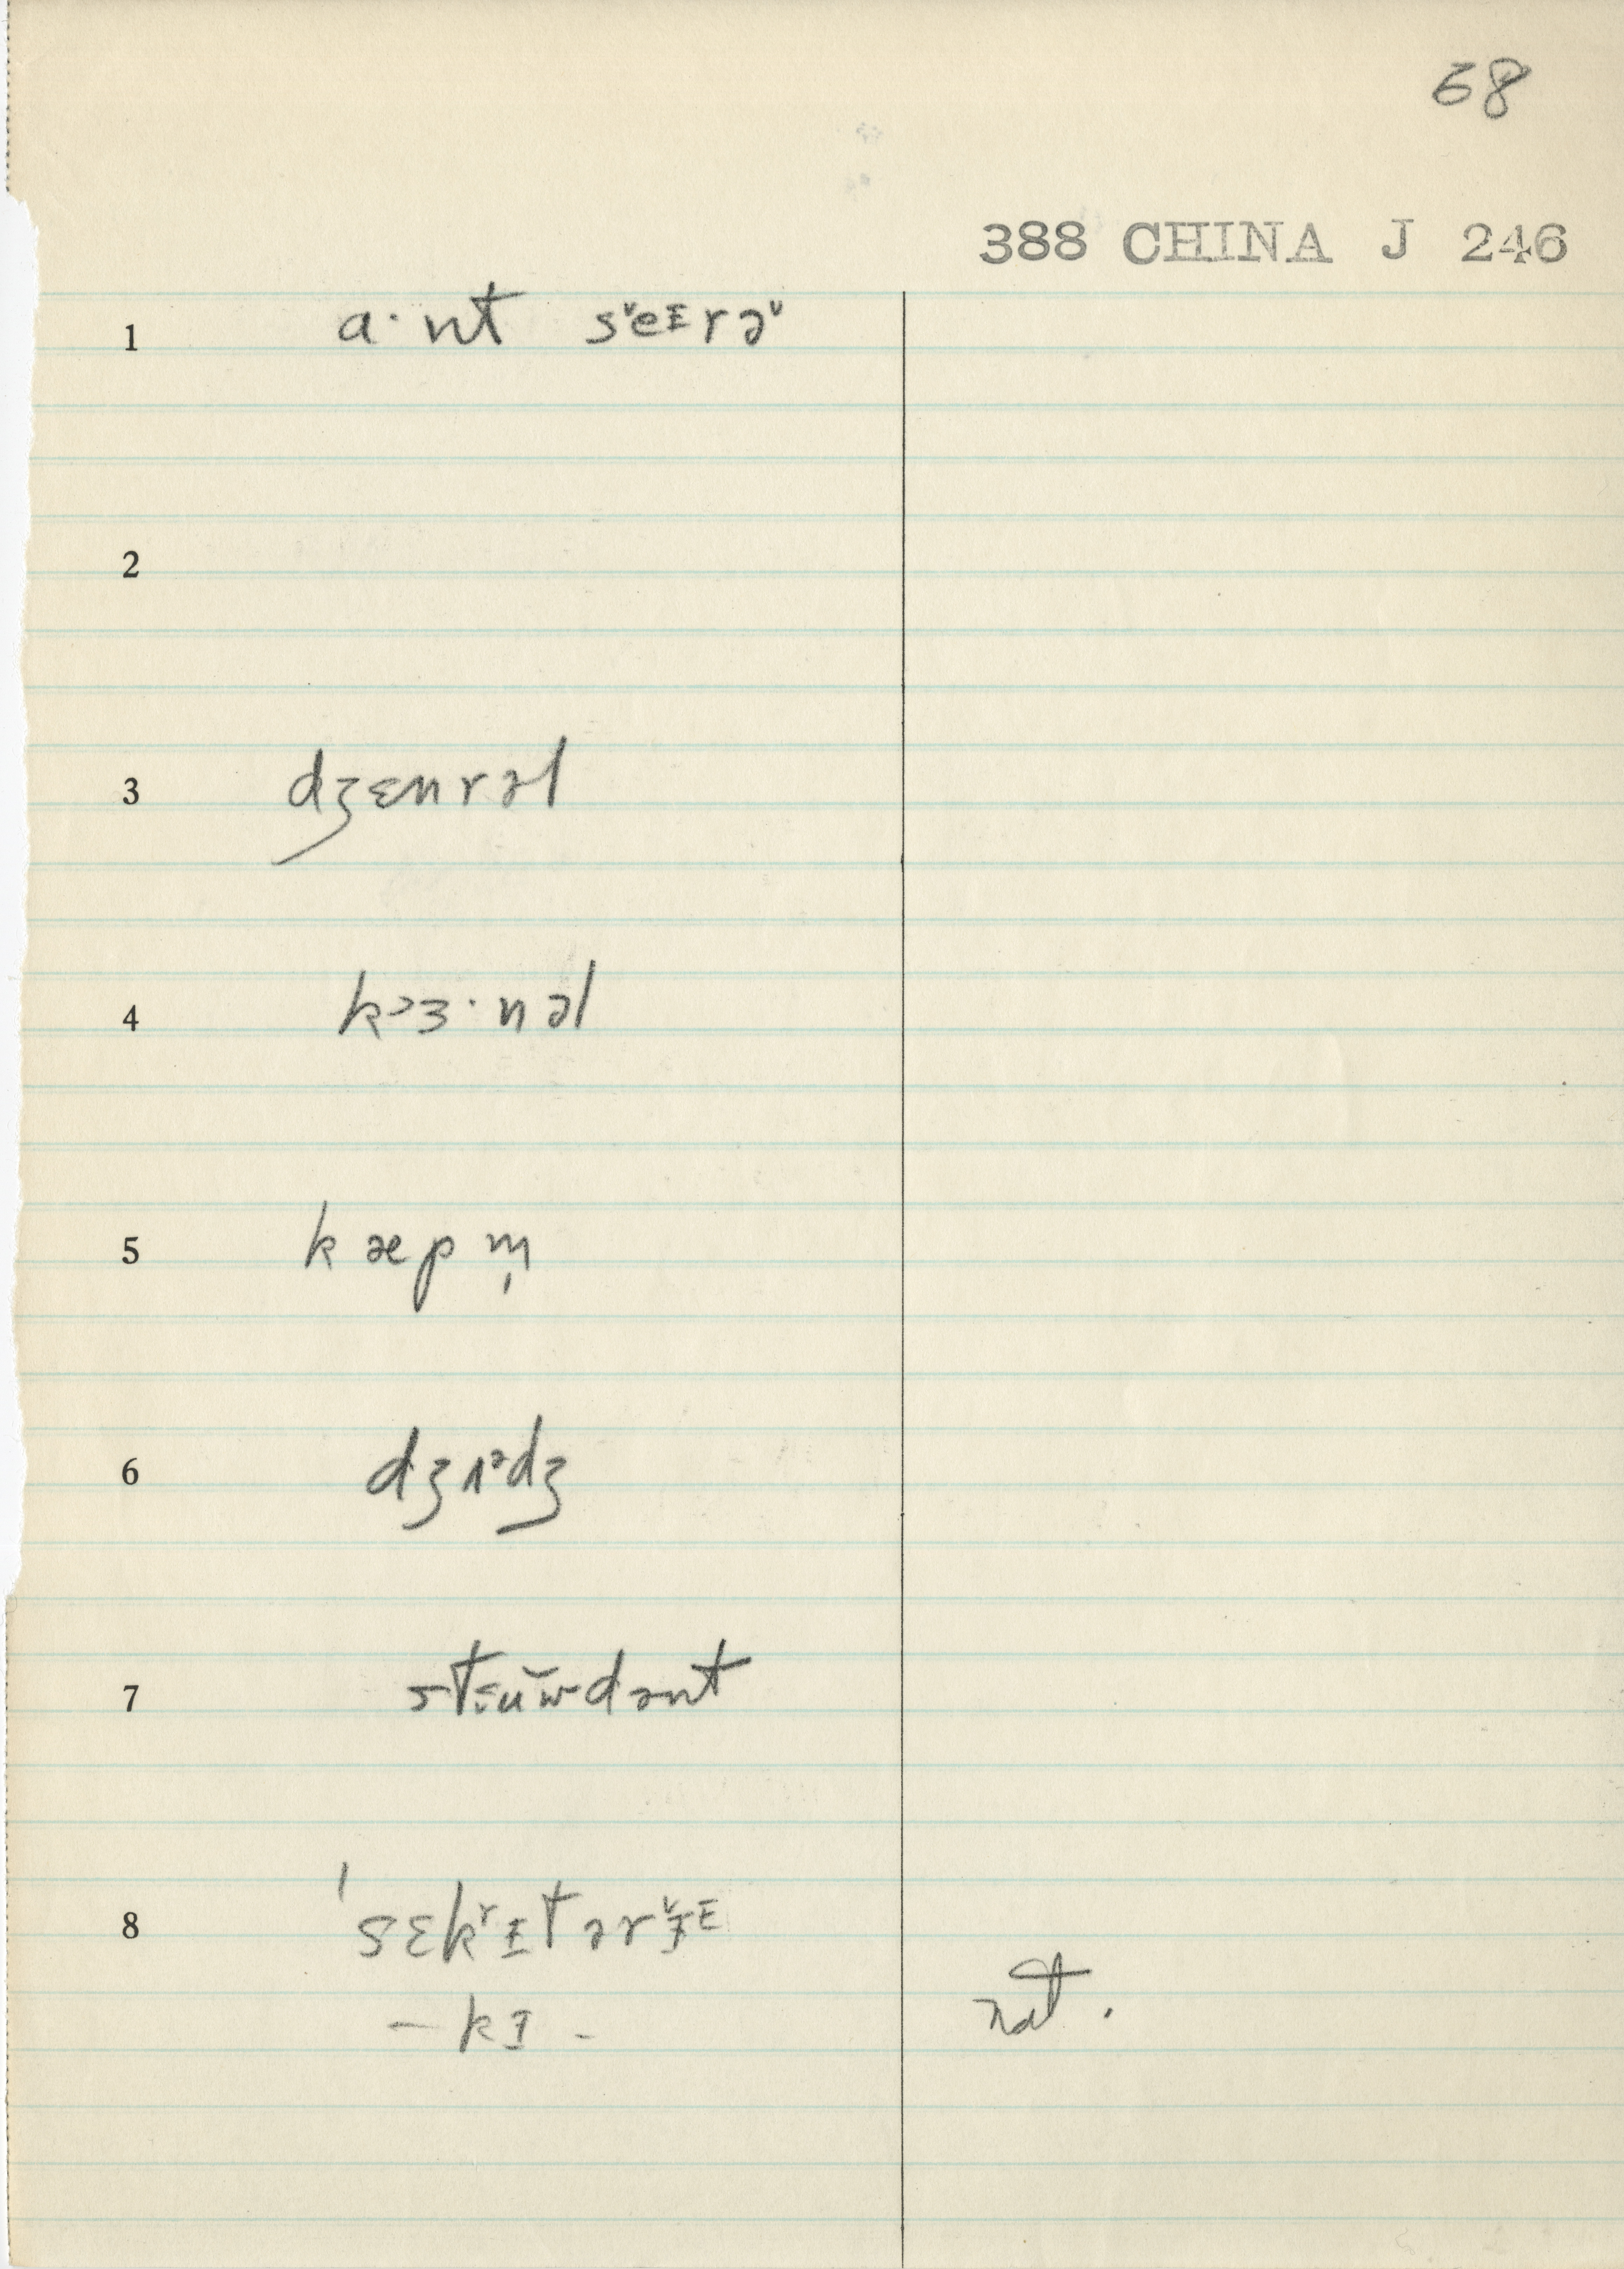 68
388 CHINA J 246
1 a·nt sᵛeɪrəᵛ
2
3 dʒɛnrəl
4 kɜ·nəl
5 kæpm̩
6 dʒʌᵊdʒ
7 stɪu̯w̆dənt
8 ˈsɛkʳɪtərɪ̌ᴱ
– kɪ - not.